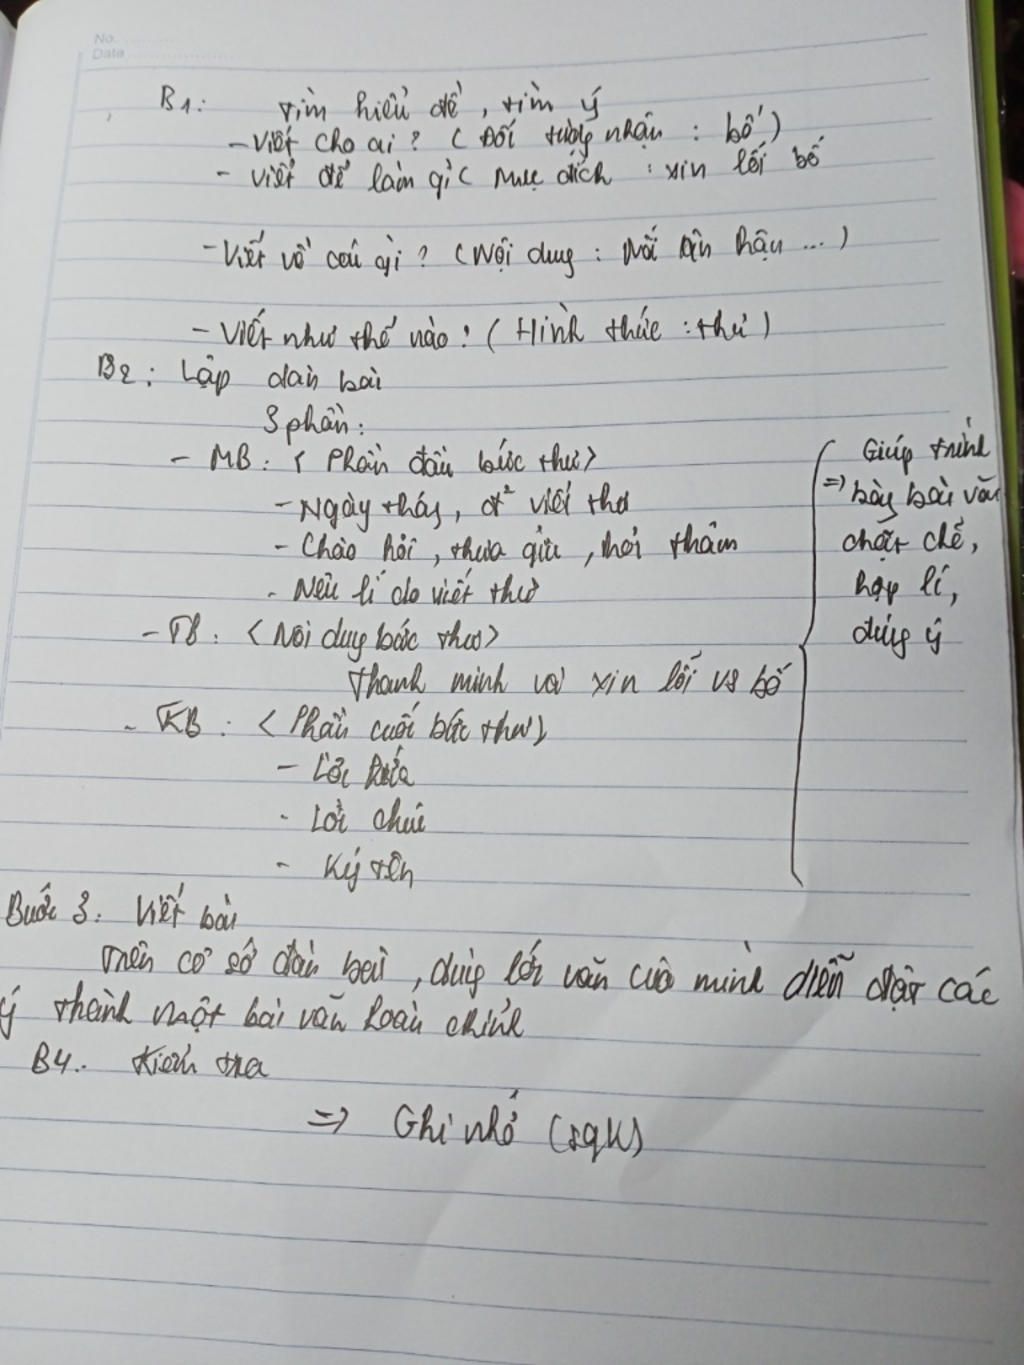 No.
Date
B1: Tìm hiểu đề, tìm ý
- Viết cho ai? (Đối tượng nhận : bố)
- Viết để làm gì( Mục đích : xin lỗi bố
- Viết về cái gì? (Nội dung : Nỗi ân hận ...)
- Viết như thế nào? (Hình thức : thư)
B2: Lập dàn bài
3 phần:
- MB: < Phần đầu bức thư>
- Ngày tháng, đ² viết thư
- Chào hỏi, thưa gửi, hỏi thăm
- Nêu lí do viết thư
- TB: <Nội dung bức thư>
Thanh minh và xin lỗi vs bố
- KB: <Phần cuối bức thư>
- Lời hứa
- Lời chúc
- Ký tên
Giúp trình
=> bày bài văn
chặt chẽ,
hợp lí,
đúng ý
Bước 3: Viết bài
Trên cơ sở dàn bài, dùng lời văn của mình diễn đạt các
ý thành một bài văn hoàn chỉnh
B4: Kiểm tra
=> Ghi nhớ (sgk)